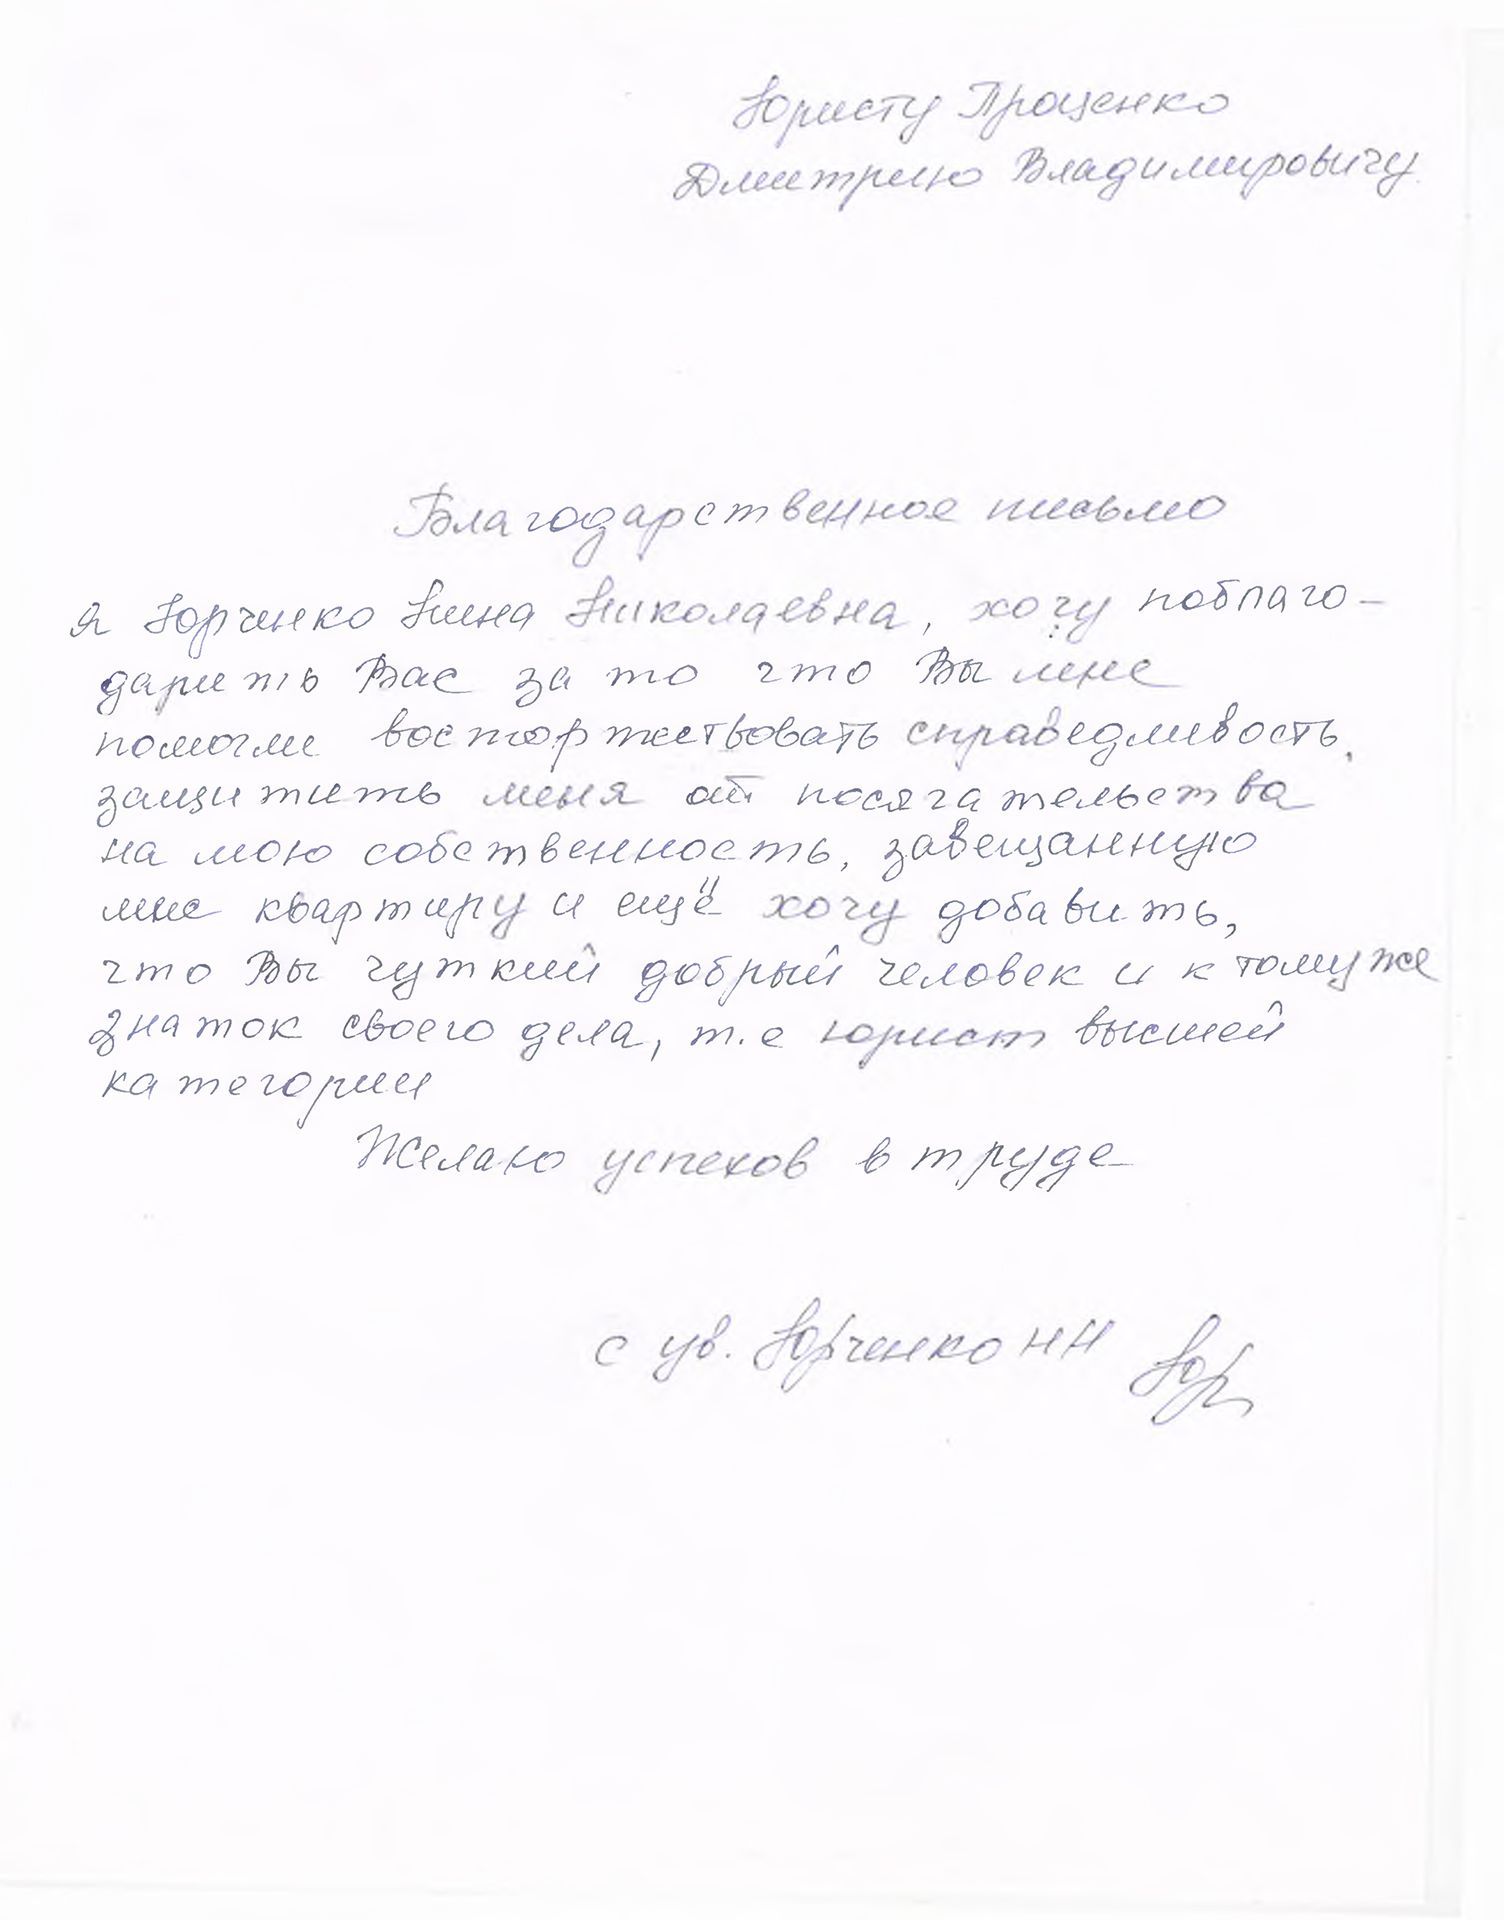 Юристу Проценко
Дмитрию Владимировичу
Благодарственное письмо
я Юрченко Нина Николаевна, хочу поблаго-
дарить Вас за то что Вы мне
помогли восторжествовать справедливость,
защитить меня от посягательства
на мою собственность, завещанную
мне квартиру и ещё хочу добавить,
что Вы чуткий добрый человек и к тому же
знаток своего дела, т.е юрист высшей
категории
Желаю успехов в труде
с ув. Юрченко НН Юр